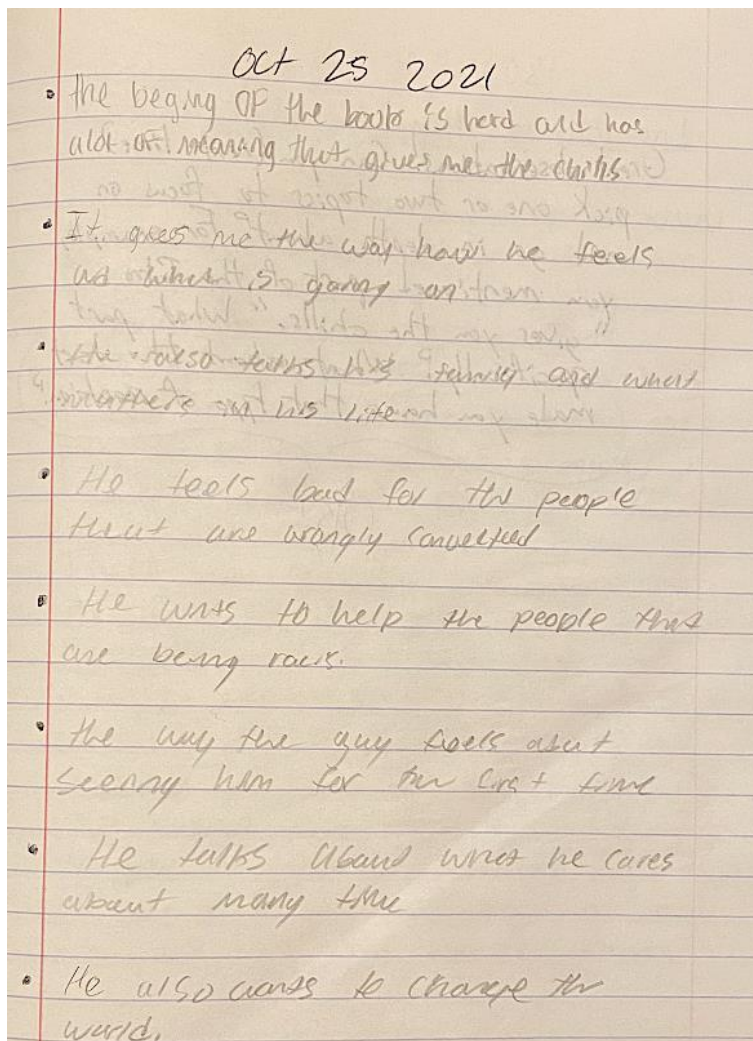 Oct 25 2021
• the beging OF the book is hard and has
alot of meaning that gives me the chills
• It gives me the way how he feels
and what is going on
• He also talks his family and what
matters in his life
• He feels bad for the people
that are wrongly
• He wnts to help the people that
are being racis.
• the way the guy feels abut
seenng him for the first time
• He talks about what he cares
about many time
• He also wants to change the
world.